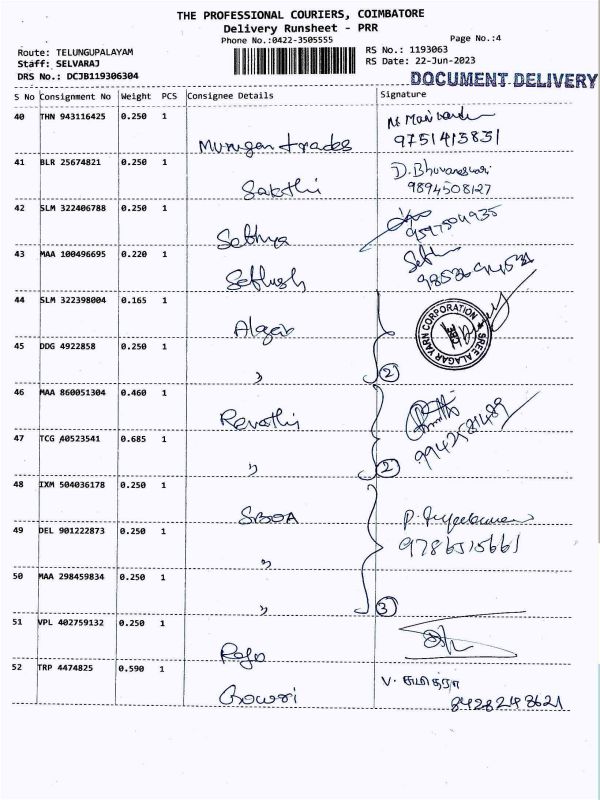 THE PROFESSIONAL COURIERS, COIMBATORE
Delivery Runsheet - PRR
Phone No.:0422-3505555
Page No.:4
Route: TELUNGUPALAYAM
RS No.: 1193063
Staff: SELVARAJ
RS Date: 22-Jun-2023
DRS No.: DCJB119306304
DOCUMENT DELIVERY
S No Consignment No Weight PCS Consignee Details Signature
40 THN 943116425 0.250 1
Murugan trades 9751413831
41 BLR 25674821 0.250 1 D. Bhuvaneswari
Sakthi 9894508127
42 SLM 322406788 0.250 1
Sathya 9597504935
43 MAA 100496695 0.220 1
Sathish
44 SLM 322398004 0.165 1
Alagar SREE ALAGAR YARN CORPORATION
45 DDG 4922858 0.250 1
" 2
46 MAA 860051304 0.460 1
Revathi
47 TCG 40523541 0.685 1 9942581489
" 2
48 IXM 504036178 0.250 1
SBOA
49 DEL 901222873 0.250 1 9786515661
"
50 MAA 298459834 0.250 1
" 3
51 VPL 402759132 0.250 1
Raja
52 TRP 4474825 0.590 1
Gowri 8428248621